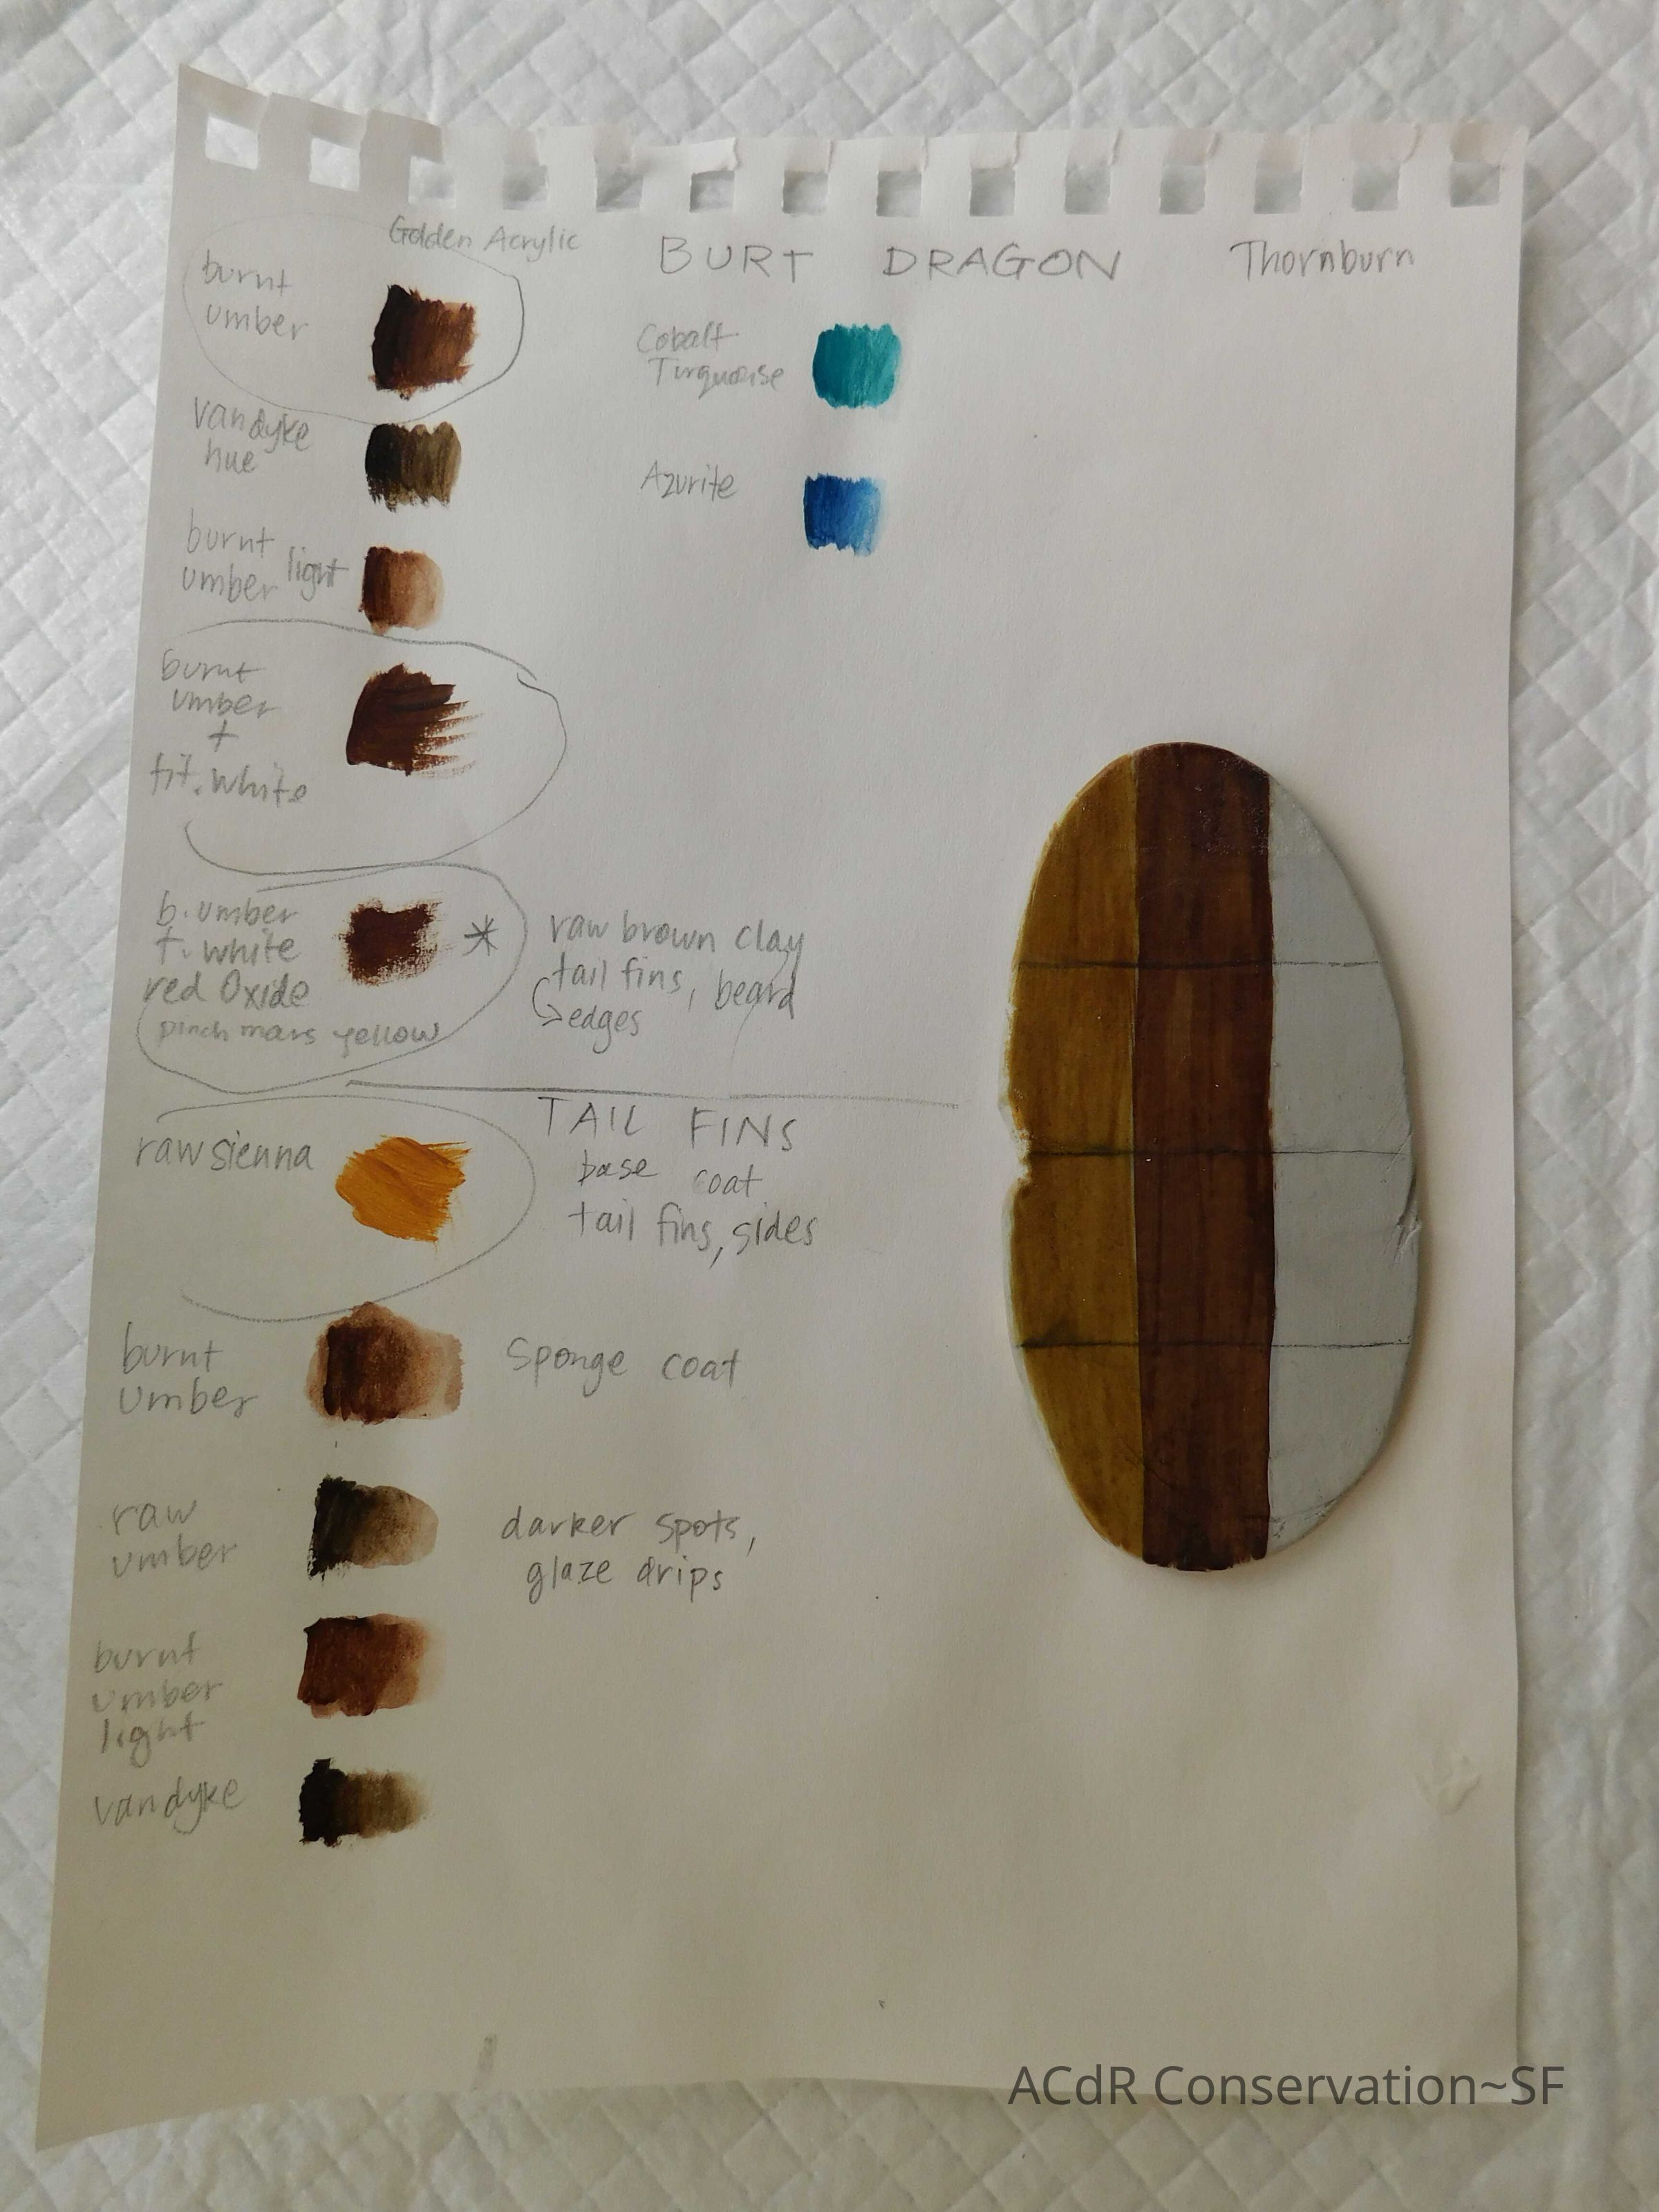 Golden Acrylic
BURT DRAGON
Thornburn
burnt
umber
Vandyke
hue
burnt
umber light
burnt
umber
+
tit. white
b. umber
t. white
red Oxide
pinch mars yellow
*
raw brown clay
tail fins, beard
edges
Cobalt
Turquoise
Azurite
TAIL FINS
base coat
tail fins, sides
raw sienna
burnt
umber
Sponge coat
raw
umber
darker spots,
glaze drips
burnt
umber
light
vandyke
ACdR Conservation~SF